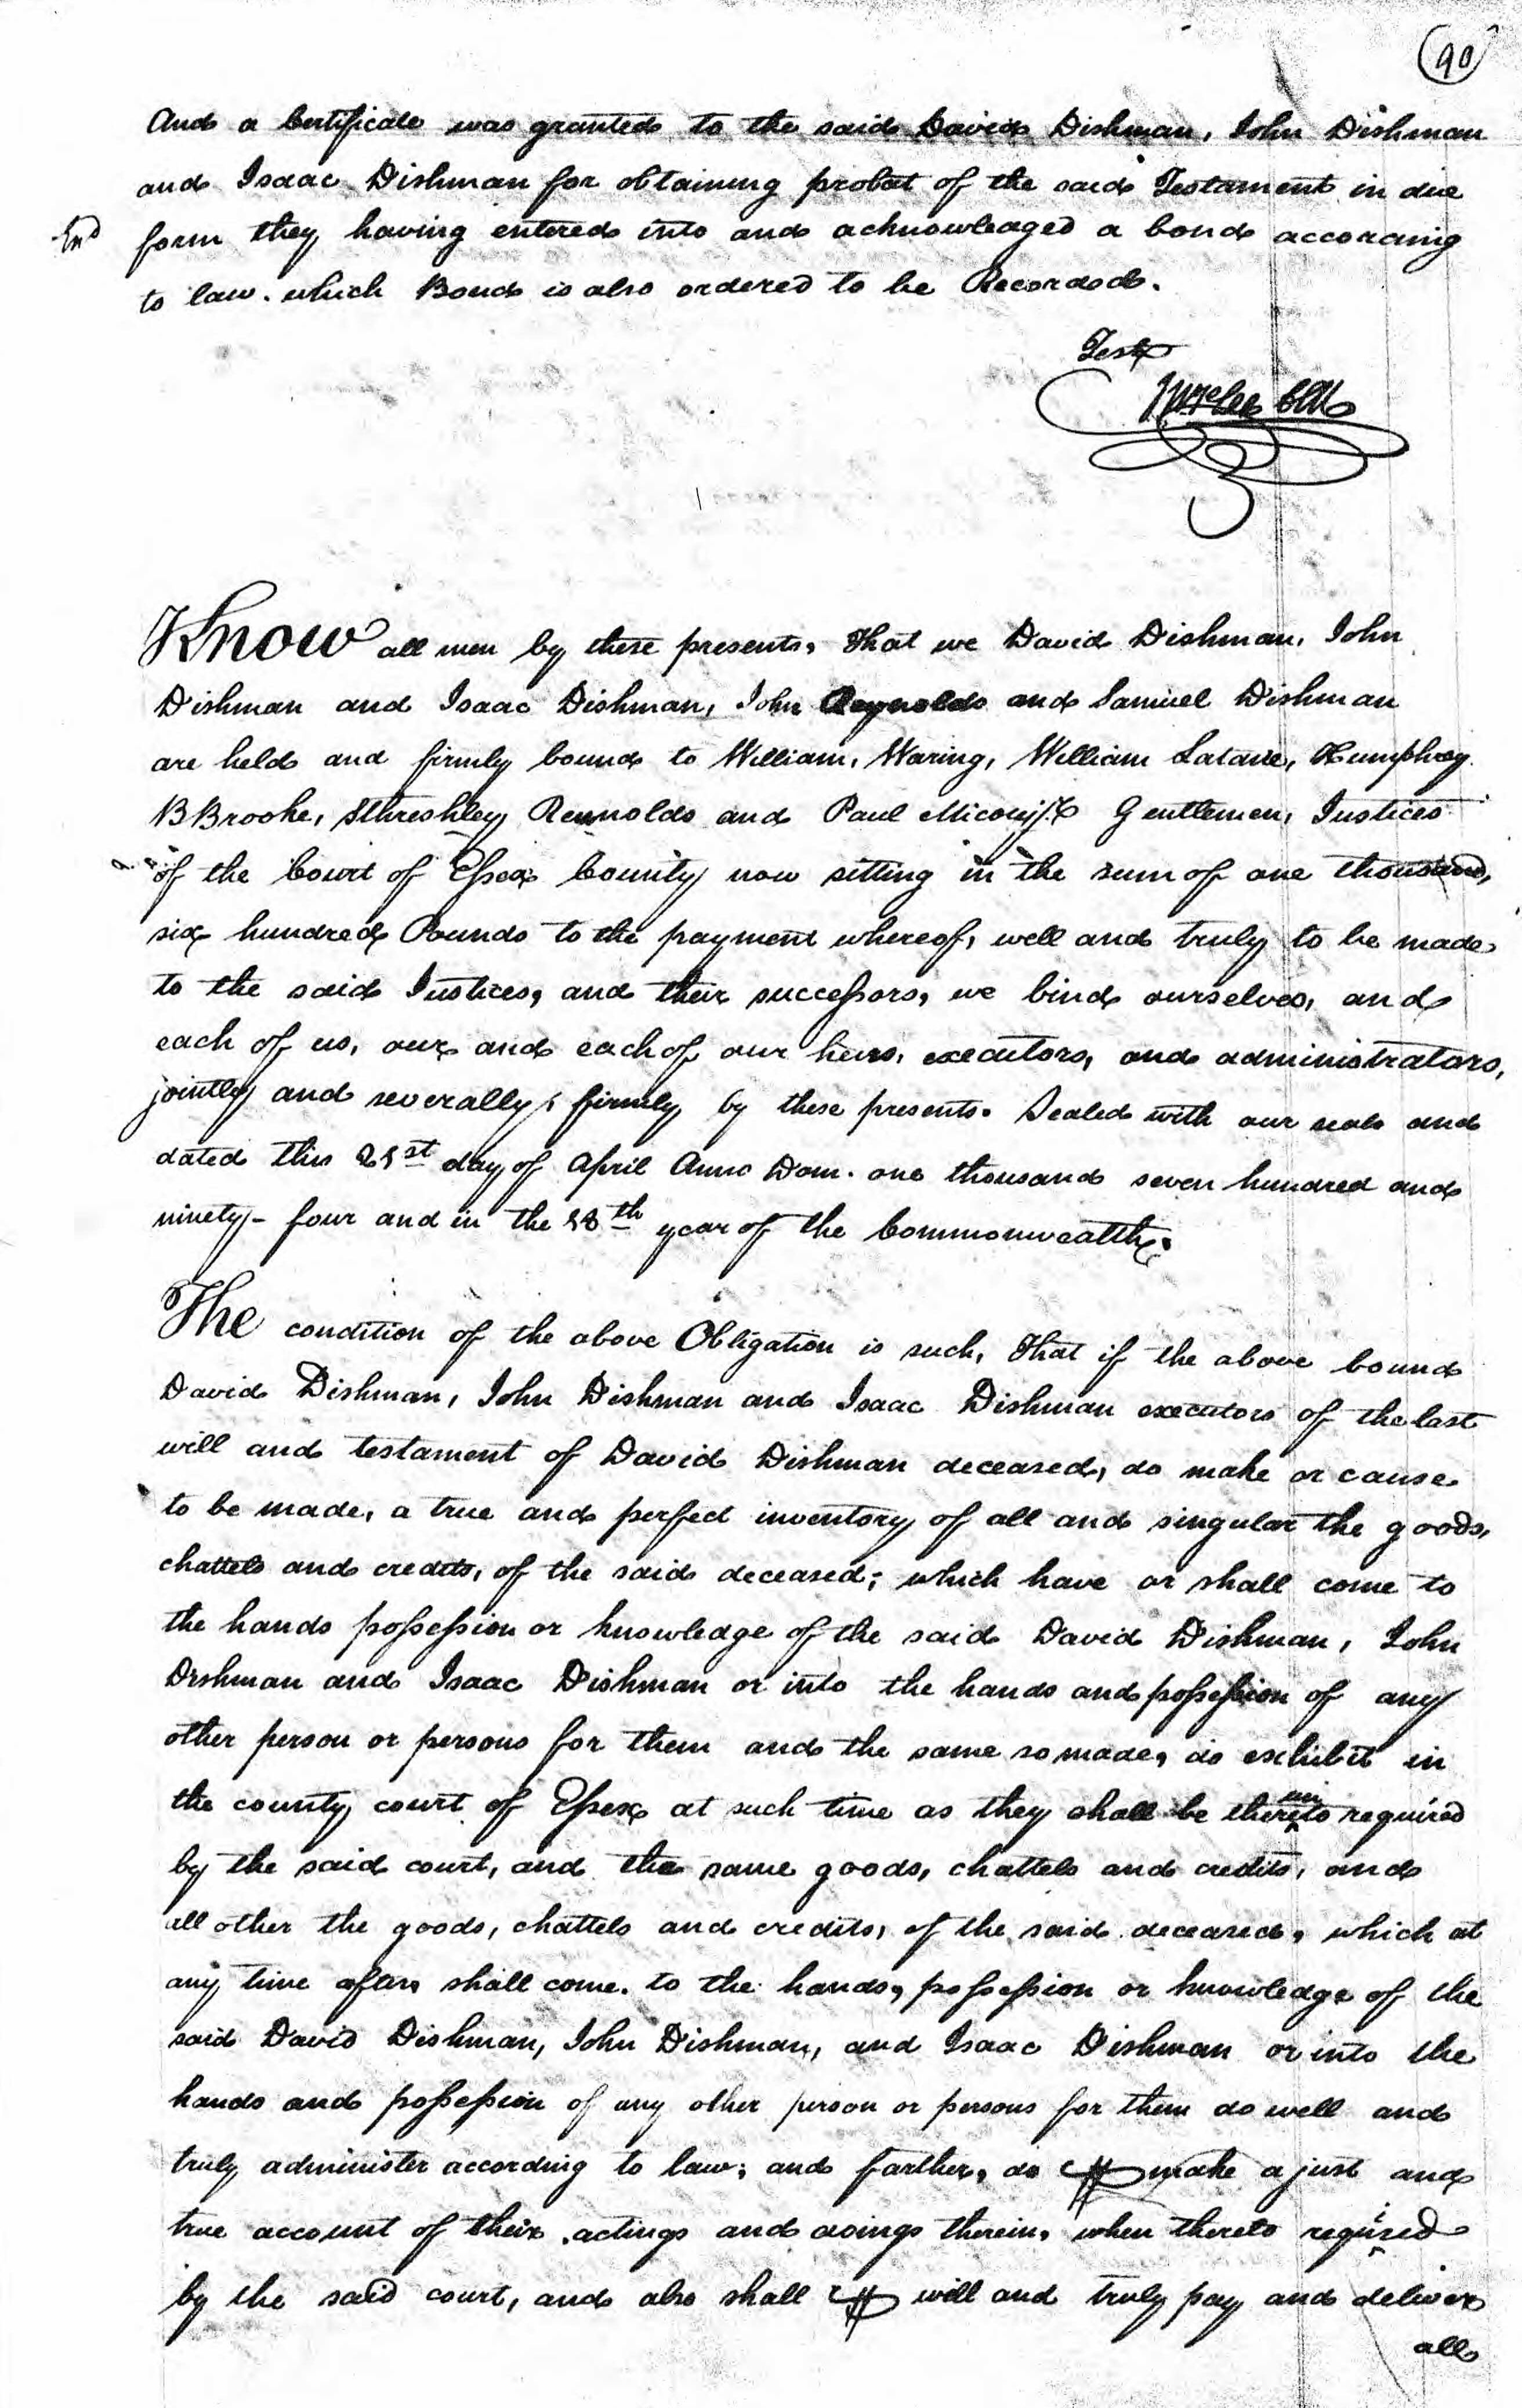 90
And a Certificate was granted to the said David Dishman, John Dishman
and Isaac Dishman for obtaining probat of the said Testament in due
form they having entered into and acknowledged a bond according
to law. which Bond is also ordered to be Recorded.
Test
Know all men by these presents, That we David Dishman, John
Dishman and Isaac Dishman, John Reynolds and Samuel Dishman
are held and firmly bound to William, Waring, William Latane, Humphrey
B Brooke, Sthreshley Reynolds and Paul Micou Gentlemen, Justices
of the Court of Essex County now sitting in the sum of one thousand,
six hundred Pounds to the payment whereof, well and truly to be made
to the said Justices, and their successors, we bind ourselves, and
each of us, our and each of our heirs, executors, and administrators,
jointly and severally, firmly by these presents. Sealed with our seals and
dated this 21st day of April Anno Dom. one thousand seven hundred and
ninety-four and in the 18th year of the Commonwealth.
The condition of the above Obligation is such, That if the above bound
David Dishman, John Dishman and Isaac Dishman executors of the last
will and testament of David Dishman deceased, do make or cause
to be made, a true and perfect inventory of all and singular the goods,
chattels and credits, of the said deceased; which have or shall come to
the hands possession or knowledge of the said David Dishman, John
Dishman and Isaac Dishman or into the hands and possession of any
other person or persons for them and the same so made, do exhibit in
the county court of Essex at such time as they shall be thereunto required
by the said court, and the same goods, chattels and credits, and
all other the goods, chattels and credits, of the said deceased, which at
any time after, shall come. to the hands, possession or knowledge of the
said David Dishman, John Dishman, and Isaac Dishman or into the
hands and possession of any other person or persons for them do well and
truly administer according to law; and farther, do make a just and
true account of their actings and doings therein, when thereto required
by the said court, and also shall will and truly pay and deliver
all